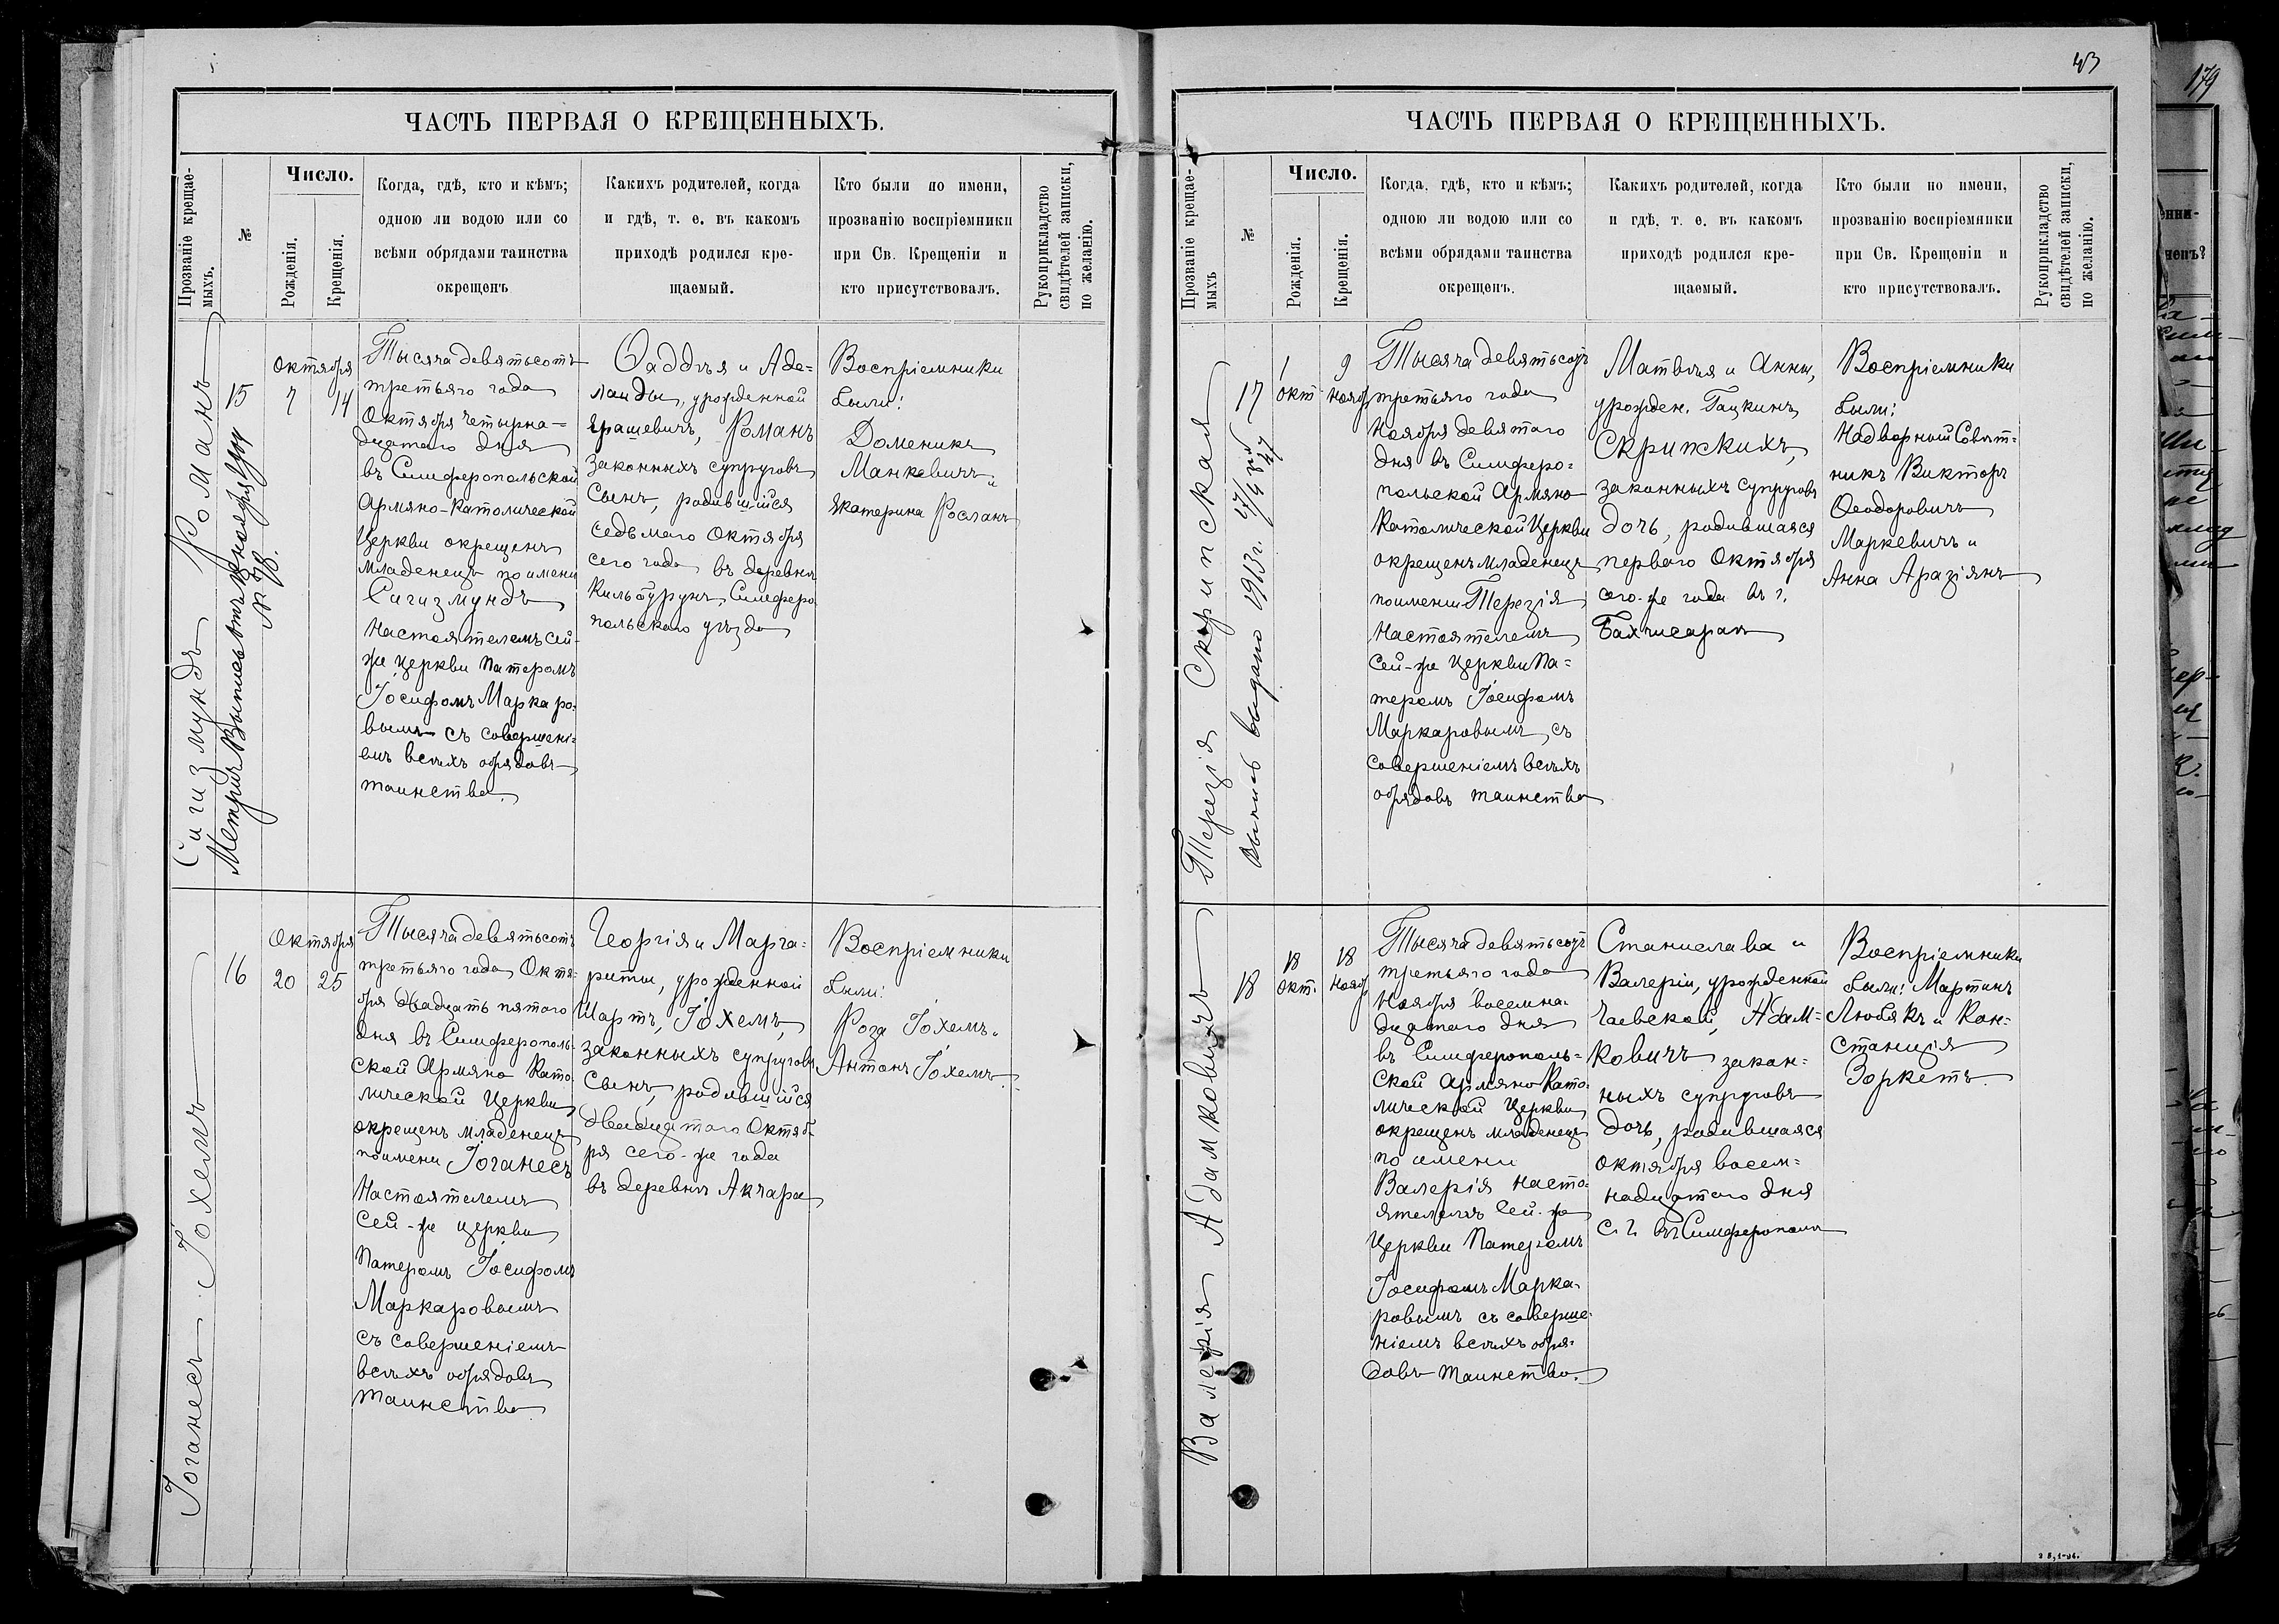 ЧАСТЬ ПЕРВАЯ О КРЕЩЕННЫХЪ.
Прозваніе крещае-
мыхъ.
№
Число.
Рожденія.
Крещенія.
Когда, гдѣ, кто и кѣмъ;
одною ли водою или со
всѣми обрядами таинства
окрещенъ
Какихъ родителей, когда
и гдѣ, т. е. въ какомъ
приходѣ родился кре-
щаемый.
Кто были по имени,
прозванію воспріемники
при Св. Крещеніи и
кто присутствовалъ.
Рукоприкладство
свидѣтелей записки,
по желанію.
Сигизмундъ Романъ
15
Октября
7
14
Тысяча девятьсотъ
третьяго года
Октября четырна=
дцатаго дня
въ Симферопольской
Армяно-Католической
Церкви окрещенъ
младенецъ по имени
Сигизмундъ
Настоятелемъ сей-
же Церкви Патеромъ
Іосифомъ Маркаро-
вымъ съ совершені=
емъ всѣхъ обрядовъ
таинства.
Ѳаддѣя и Аде=
лаиды, урожденной
Ерашевичъ, Романъ
законныхъ супруговъ
Сынъ, родившійся
седьмаго Октября
сего года въ деревнѣ
Кильбурунъ, Симферо
польскаго уѣзда
Воспріемники
были:
Доменикъ
Манкевичъ и
Екатерина Росланъ
Іоганесъ Іохемъ
16
Октября
20
25
Тысяча девятьсотъ
третьяго года Октя-
бря двадцать пятого
дня въ Симферополь-
ской Армяно Като
лической Церкви
окрещенъ младенецъ
по имени Іоганесъ
Настоятелемъ
Сей-же церкви
Патеромъ Іосифомъ
Маркаровымъ
съ совершеніемъ
всѣхъ обрядовъ
таинства
Георгія и Марга=
риты, урожденной
Шартъ, Іохемъ,
законныхъ супруговъ
Сынъ, родившійся
двадцатого Октяб-
ря сего-же года
въ деревнѣ Акчара
Воспріемники
были:
Роза Іохемъ и
Антонъ Іохемъ.
43
ЧАСТЬ ПЕРВАЯ О КРЕЩЕННЫХЪ.
Прозваніе крещае-
мыхъ
№
Число.
Рожденія.
Крещенія.
Когда, гдѣ, кто и кѣмъ;
одною ли водою или со
всѣми обрядами таинства
окрещенъ.
Какихъ родителей, когда
и гдѣ, т. е. въ какомъ
приходѣ родился кре-
щаемый.
Кто были по имени,
прозванію воспріемники
при Св. Крещеніи и
кто присутствовалъ.
Рукоприкладство
свидѣтелей записки,
по желанію.
Терезія Скрипская
Выпись выдана 1913 г.
17
1
окт
9
нояб
Тысяча девятьсотъ
третьяго года
Ноября девятого
дня въ Симферо=
польской Армяно
Католической Церкви
окрещенъ младенецъ
по имени Терезія
Настоятелемъ
Сей-же Церкви Па=
теромъ Іосифомъ
Маркаровымъ, съ
совершеніемъ всѣхъ
обрядовъ таинства
Матвѣя и Анны,
урожден. Гацкинъ
Скрипскихъ,
законныхъ супруговъ
дочь, родившаяся
первого Октября
сего-же года въ г.
Бахчисараѣ
Воспріемники
были:
Надворный Совѣт=
никъ Викторъ
Ѳеодоровичъ
Маркевичъ и
Анна Аразіянъ
Валерія Адамковичъ
18
18
окт.
18
нояб
Тысяча девятьсотъ
третьяго года
Ноября восемна-
дцатого дня
въ Симферополь=
ской Армяно Като-
лической Церкви
окрещенъ младенецъ
по имени
Валерія Насто-
ятелемъ Сей-же
Церкви Патеромъ
Іосифомъ Марка-
ровымъ съ соверше-
ніемъ всѣхъ обря-
довъ таинства.
Станислава и
Валеріи, урожденной
Чаевской, Адам=
ковичъ закон=
ныхъ супруговъ
дочь, родившаяся
октября восем=
надцатого дня
с. г. въ Симферополѣ
Воспріемники
были: Мартинъ
Любякъ и Кон=
станція
Зоркетъ.
179